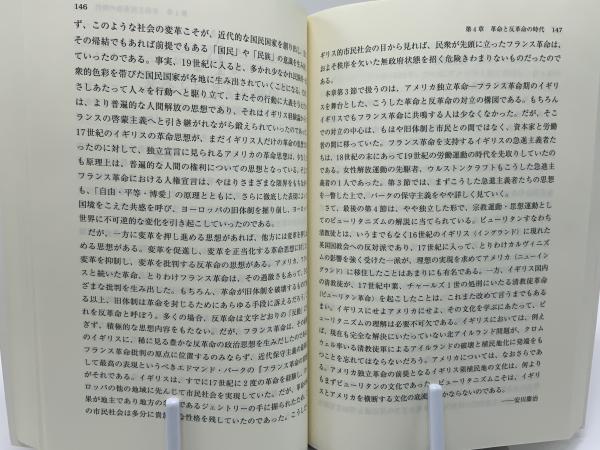 146
ず、このような社会の変革こそが、近代的な国民国家を創り出し、
その帰結でもあれば前提でもある「国民」や「民族」の意識を生み
っていったのである。事実、19世紀に入ると、多かれ少なかれ国民
衆的色彩を帯びた国民国家が各地に生み出されていくことになる。
さしあたって人々を行動へと駆り立て、またその行動に大義を
は、より普遍的な人間解放の思想であり、それはイギリス経験論
ランスの啓蒙主義へと引き継がれながら鍛えられていったのであ
17世紀のイギリスの革命思想が、まだイギリス人だけの革命の
ったのに対して、独立宣言に見られるアメリカの革命思想は、
も原理上は、普遍的な人間の権利についての思想となっている。
フランス革命における人権宣言は、やはりさまざまな限界を
も、「自由・平等・博愛」の原理とともに、さらに徹底した表現
国境をこえた共感を呼び、ヨーロッパの旧体制を揺り崩し、
世界に不可逆的な変化を引き起こしていったのである。
だが、一方に変革を押し進める思想があれば、他方には変革を
める思想がある。変革を促進し、変革を正当化する革命思想に
変革を抑制し、変革を批判する反革命の思想がある。アメリカ、
スと続いた革命、とりわけフランス革命は、その過激さもあって、
まな批判を生み出した。もちろん、革命が旧体制を破壊するもの
る以上、旧体制は革命を封じるためにあらゆる手段に訴えるだろう。
れを反革命と呼ぼう。多くの場合、反革命は文字どおりの「反動」に
ぎず、積極的な思想内容をもたない。だが、フランス革命は、その
のイギリスに、稀に見る豊かな反革命の政治思想を生みだしたのである。
フランス革命批判の原点に位置するのみならず、近代保守主義の
して最高の表現というべきエドマンド・バークの『フランス革命の
がそれである。イギリスは、すでに17世紀に2度の革命を経験し、
ロッパの他の地域に先んじて市民社会を実現していた。だが、
巣が地主であり地方の
であるジェントリーの手に握られたため、
の市民社会は多分に貴族
な性格を残していたのである。こうした
第4章 革命と反革命の時代 147
ギリス的市民社会の目から見れば、民衆が先頭に立ったフランス革命は、
およそ秩序を欠いた無政府状態を招く危険きわまりないものだったので
ある。
本章第3節で扱うのは、アメリカ独立革命―フランス革命期のイギリス
を舞台とした、こうした革命と反革命の対立の構図である。もちろん
イギリスでもフランス革命に共鳴する人は少なくなかった。だが、そこ
での対立の中心は、もはや旧体制と市民との間ではなく、資本家と労働
者の間に移っていた。フランス革命を支持するイギリスの急進主義者た
ちは、18世紀の末にあって19世紀の労働運動の時代を先取りしていたの
である。女性解放運動の先駆者、ウルストンクラフトもこうした急進主
義者の1人であった。第3節では、まずこうした急進主義者たちの思想
を一瞥した上で、バークの保守主義をやや詳しく見ていく。
さて、最後の第4節は、やや独立した形で、宗教運動・思想運動とし
てのピューリタニズムの解説に当てられている。ピューリタンすなわち
清教徒とは、いうまでもなく16世紀のイギリス(イングランド)に現れた
英国国教会への反対派であり、17世紀に入って、とりわけカルヴィニズ
ムの影響を強く受けた一派が、理想の実現を求めてアメリカ(ニューイン
グランド)に移住したことはあまりにも有名である。一方、イギリス国内
の清教徒が、17世紀中葉、チャールズ1世の処刑にいたる清教徒革命
(ピューリタン革命)を起こしたことは、これまた改めて言うまでもある
まい。イギリスにせよアメリカにせよ、その文化を学ぶにあたって、ピ
ューリタニズムの理解は必要不可欠である。イギリスにおいては、例え
ば、現在も完全な解決にいたっていない北アイルランド問題が、クロム
ウェル率いる清教徒革軍によるアイルランドの蹂躙と植民地化に発端をも
つことを忘れてはならないだろう。アメリカについては、なおさらであ
る。アメリカ独立革命の前提となるイギリス領植民地の文化は、何より
もまずピューリタンの文化であった。ピューリタニズムこそは、イギリ
スとアメリカを横断する文化の底流
かならないのである。
――安川慶治